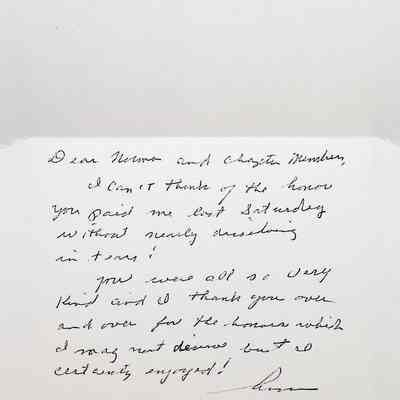 Dear Norma and Chapter Members,
I can't think of the honor
you paid me last Saturday
without nearly dissolving
in tears!
You were all so very
kind and I thank you over
and over for the honors which
I may not deserve but I
certainly enjoyed!